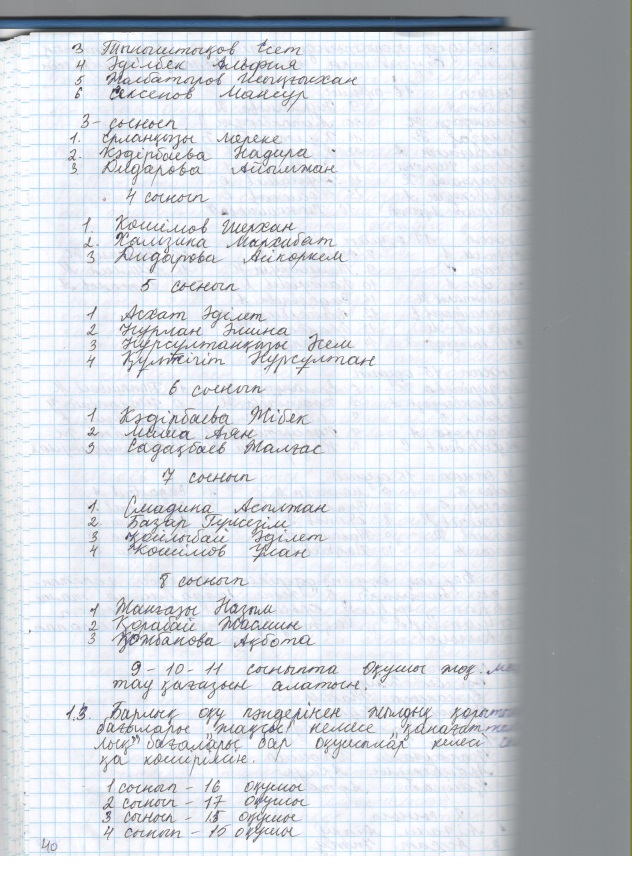 3 Тыныштықов Әсет
4 Әділбек Альфия
5 Жалбатыров Шыңғысхан
6 Сексенов Мансур
3- сынып
1. Ерланқызы Мереке
2. Кәдірбаева Надира
3 Дидарова Айымжан
4 сынып
1. Кошімов Шерхан
2. Хамзина Мархабат
3 Дидарова Айкоркем
5 сынып
1 Асхат Әділет
2 Нурлан Әмина
3 Нурсултанқызы Әсем
4 Култегіт Нурсултан
6 сынып
1 Кәдірбаева Жібек
2 Аян
3 Садақбаев Жалғас
7 сынып
1. Смадина Асылжан
2. Базар Гүлсезім
3 Қойлыбай Әділет
4 Кошімов Ұлан
8 сынып
1 Жанғазы Назым
2 Қорабай Жасмин
3 Қожбанова Ақбота
9-10-11 сыныпта оқушы жоқ. ма
тау қағазын алатын.
1.3. Барлық оқу пәндерінен жылдық қорыт
бағалары "жақсы" немесе "қанағат
лық" бағалары бар оқушылар келесі
қа көшірілсін.
1 сынып - 16 оқушы
2 сынып - 17 оқушы
3 сынып - 15 оқушы
4 сынып - 15 оқушы
40